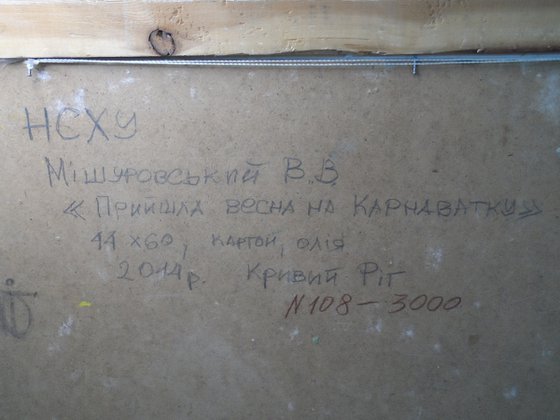 НСХУ
Мішуровський В.В.
«Прийшла весна на Карнаватку»
44 х 60, картон, олія
2014р. Кривий Ріг
N108 – 3000